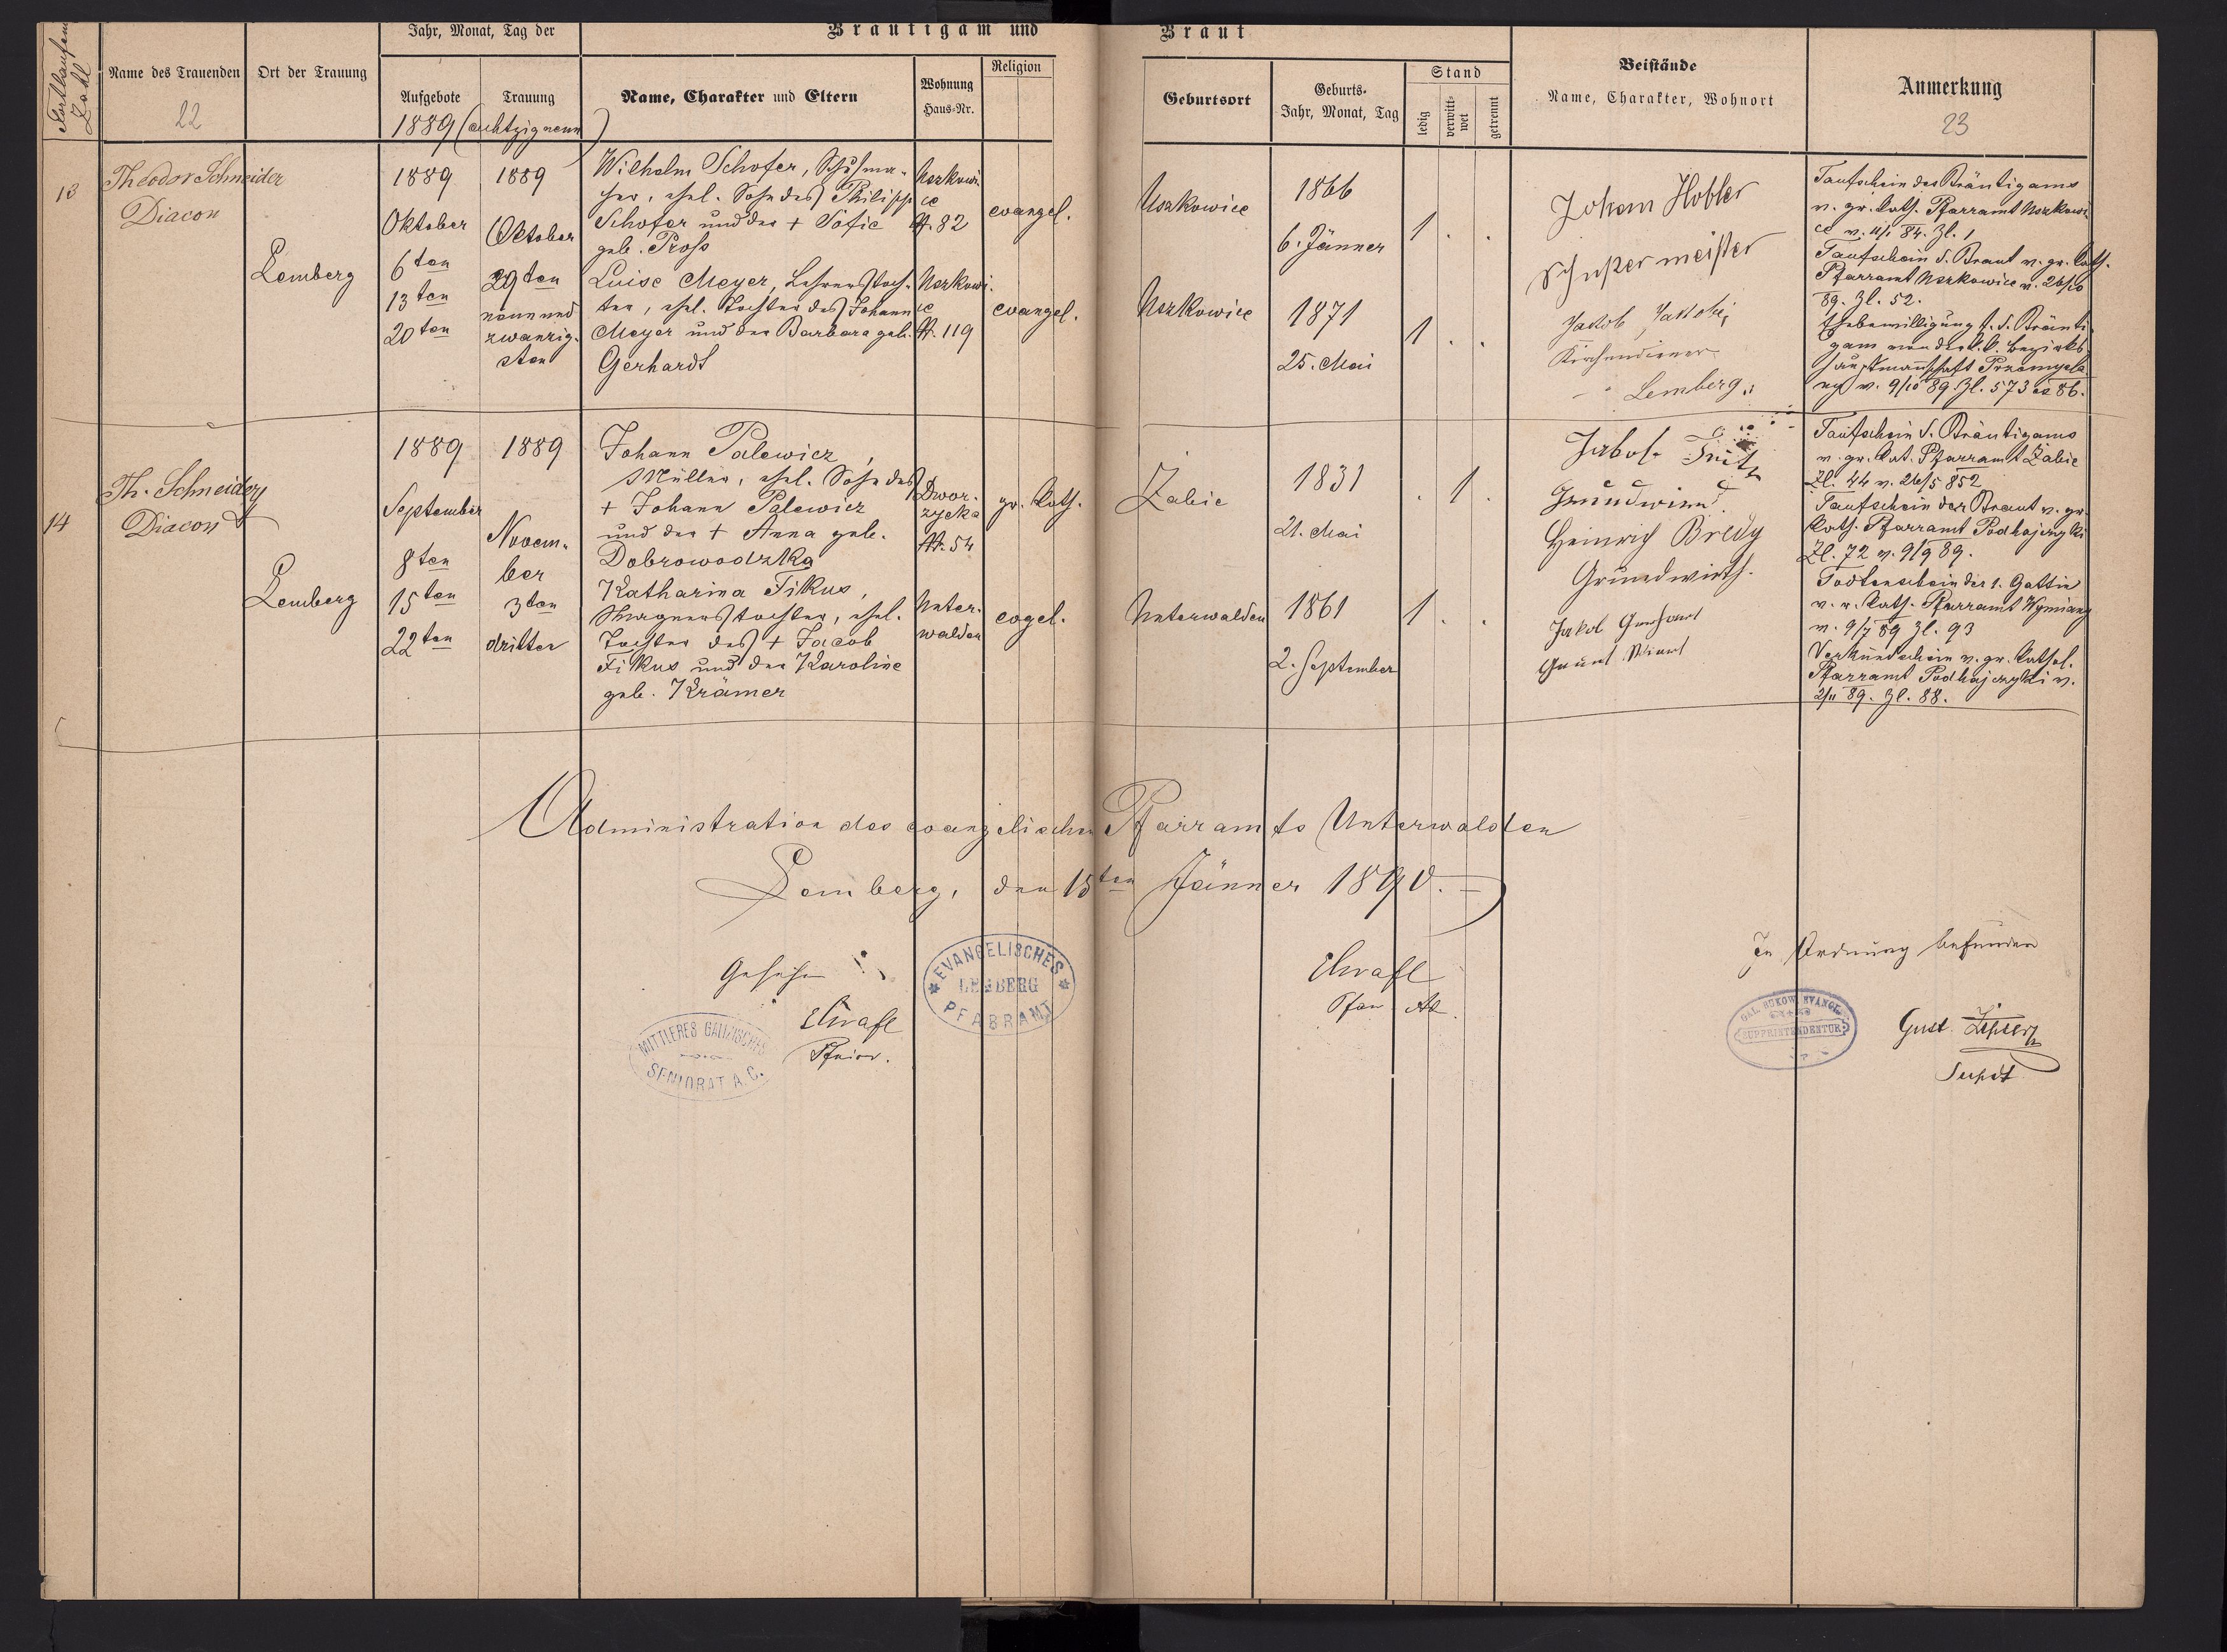 Fortlaufende Zahl
Jahr, Monat, Tag der
Bräutigam und
Braut
Name des Trauenden
Ort der Trauung
Aufgebote
Trauung
Name, Charakter und Eltern
Wohnung
Haus-Nr.
Religion
Geburtsort
Geburts-
Jahr, Monat, Tag
Stand
ledig
verwitt-
wet
getrennt
Beistände
Name, Charakter, Wohnort
Anmerkung
22
23
1889 (achtzig neun)
13
Theodor Schneider
Diacon
Lemberg
1889
Oktober
6ten
13ten
20ten
1889
October
29ten
neunund
zwanzig-
sten
Wilhelm Schofer, Schuhma-
cher, ehel. Sohn des Philipp
Schofer und der + Sofie
geb. Pross
Luise Meyer, Lehrerstoch-
ter, ehel. Tochter des Johann
Meyer und der Barbara geb.
Gerhardt
Uszkowi
ce
N. 82
Uszkowi-
ce
N. 119
evangel.
evangel.
Uszkowice
Uszkowice
1866
6. Jänner
1871
25. Mai
1 . .
1 . .
Johann Hobler
Schustermeister
Jakob Jakobi
Kirchendiener
Lemberg
Taufschein des Bräutigams
v. gr. kath. Pfarramt Uszkowi
ce v. 11/1 84. Zl. 1
Taufschein d. Braut v. gr. kath.
Pfarramt Uszkowice v. 26/10
89. Zl. 52.
Ehebewilligung f. d. Bräuti
gam von der k. k. Bezirks
hauptmannschaft Przemysla
ny v. 9/10 89. Zl. 573 ex 86.
14
Th. Schneider
Diacon
Lemberg
1889
September
8ten
15ten
22ten
1889
Novem-
ber
3ten
dritter
Johann Palewicz,
Müller, ehel. Sohn des
+ Johann Palewicz
und der + Anna geb.
Dobrowodzka
Katharina Fikus,
Wagnerstochter, ehel.
Tochter des + Jacob
Fikus und der Karoline
geb. Krämer
Dwor-
zycka
N. 54
Unter-
walden
gr. kath.
evgel.
Zabie
Unterwalden
1831
21. Mai
1861
2. September
. 1 .
1 . .
Jakob Fritz
Grundwirt
Heinrich Bredy
Grundwirth.
Jakob Gerhart
Grund Wirt
Taufschein d. Bräutigams
v. gr. kat. Pfarramt Zabie
Zl. 44 v. 26/5 852
Taufschein der Braut v. gr.
kath. Pfarramt Podhajczyki
Zl. 72 v. 9/9 89.
Todtenschein der 1. Gattin
v. r. kath. Pfarramt
v. 9/7 89 Zl. 93
Verkündschein v. gr. kathol.
Pfarramt Podhajczyki v.
2/11 89. Zl. 88.
Administration des evangelischen Pfarramts Unterwalden
Lemberg, den 15ten Jänner 1890.
Gesehen
EVANGELISCHES
LEMBERG
PFARRAMT
MITTLERES GALIZISCHES
SENIORAT A. C.
In Ordnung befunden
GAL. BUKOW. EVANGL.
SUPERINTENDENTUR
Gust.
Supdt